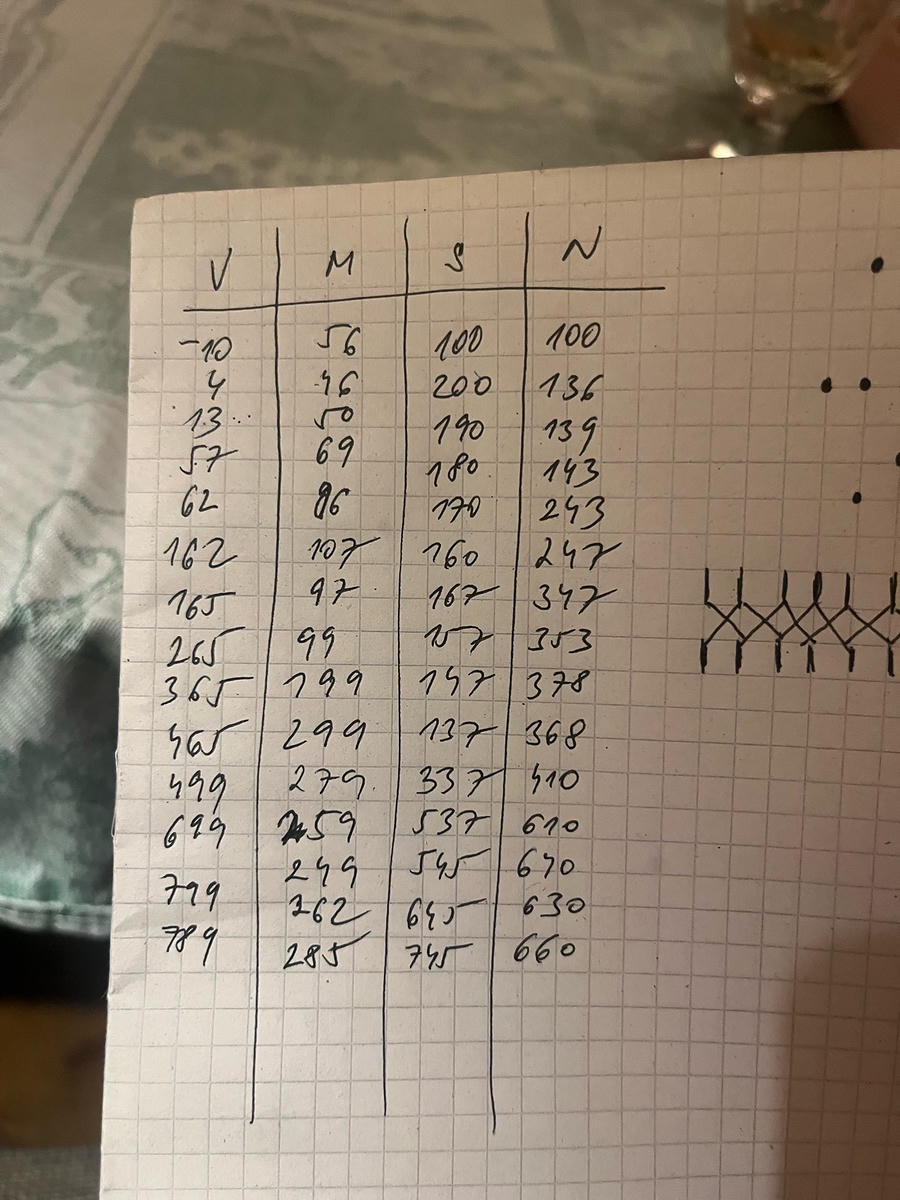 V M S N
-10 56 100 100
4 46 200 136
13 50 190 139
57 69 180 143
62 86 170 243
162 107 160 247
165 97 167 347
265 99 157 353
365 199 147 378
465 299 137 368
499 279 337 410
699 259 537 610
799 249 545 640
789 262 645 630
285 745 660